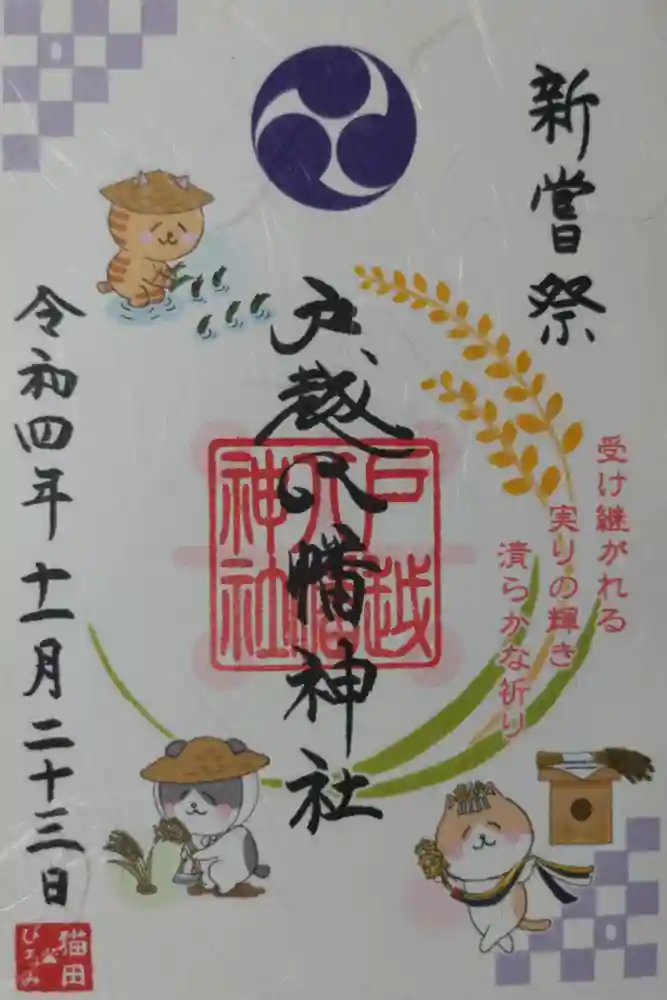 新嘗祭
受け継がれる
実りの輝き
清らかな祈り
戸越八幡神社
戸越
八幡
神社
令和四年十一月二十三日
猫田
ひろみ